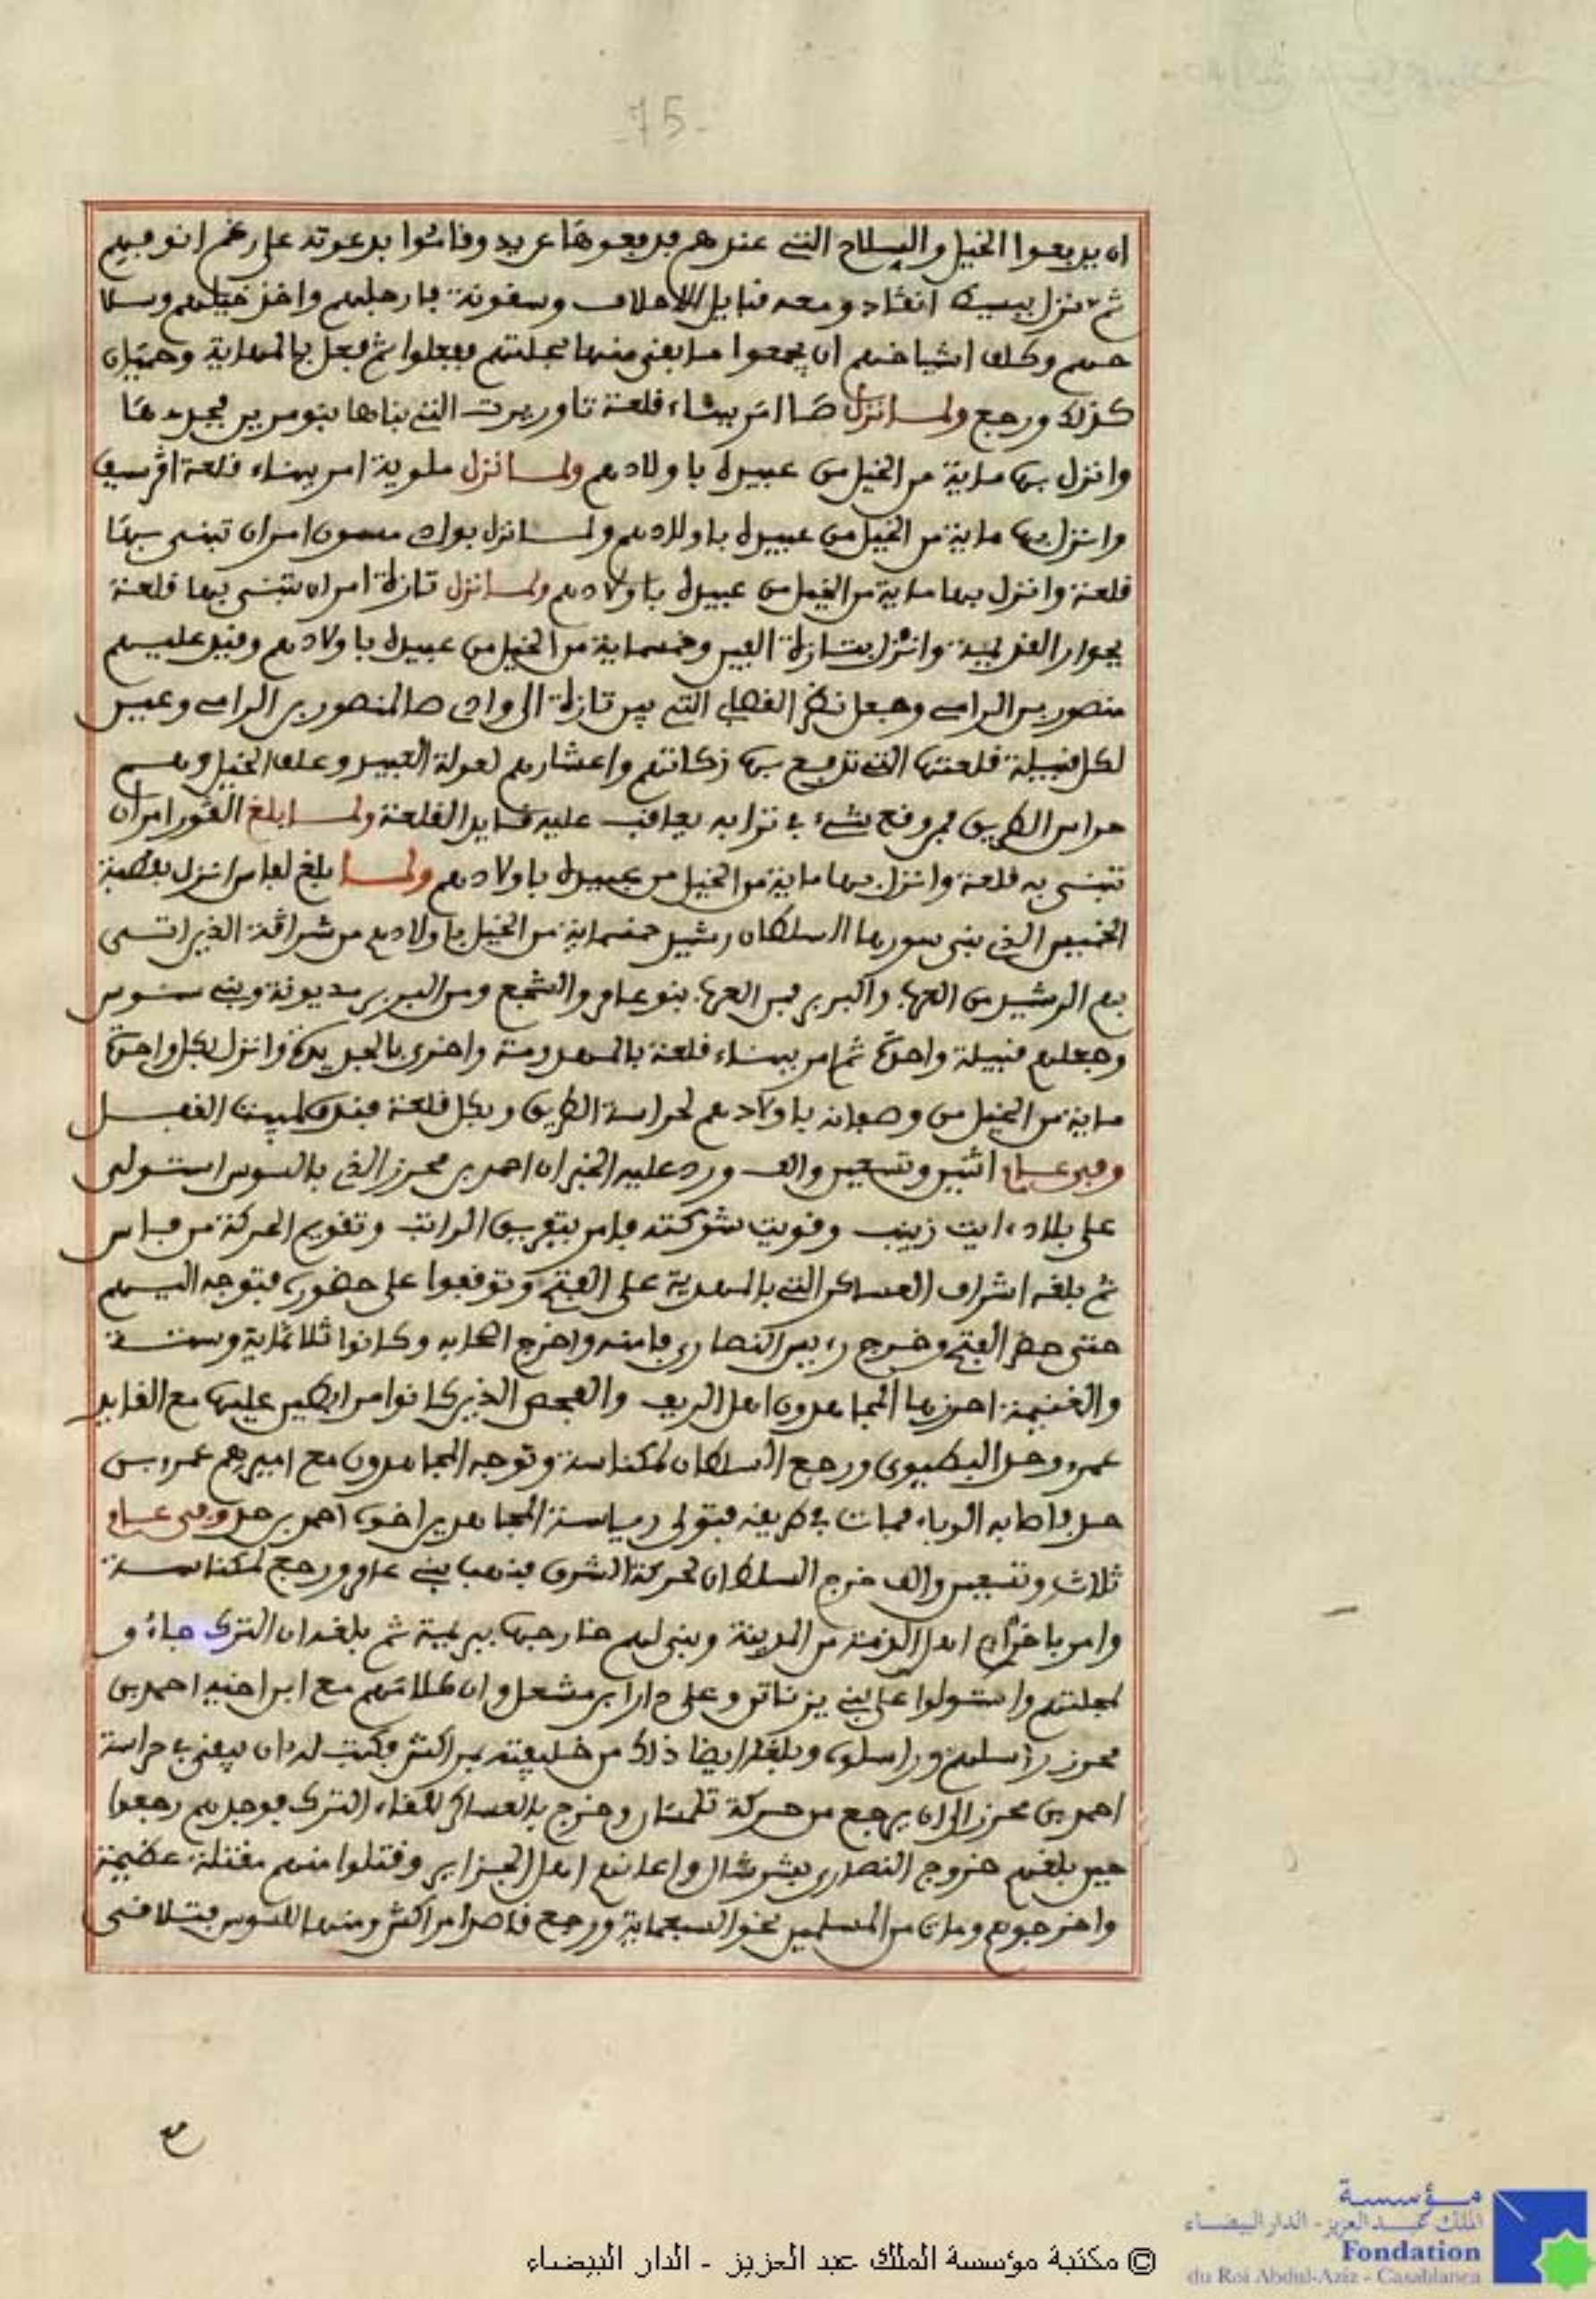 75
ان يدفعوا الخيل والسلاح التي عندهم فدفعوها عن يد وقاموا بدعوته على رغم انوفهم
ثم نزل ببسيط انڭاد ومعه قبايل الاحلاف وسڭونة فارجلهم واخذ خيلهم وسلا
حهم وكلف اشياخهم ان يجمعوا ما بقي منها بحلتهم ففعلوا ثم فعل بالمهاية وحميان
كذلك ورجع ولما نزل امر ببناء قلعة تاوريرت التي بناها بنو مرين فجددها
وانزل بها ماية من الخيل من عبيده باولادهم ولما نزل ملوية امر ببناء قلعة اڭرسيف
وانزل بها ماية من الخيل من عبيده باولادهم ولما نزل بواد مسون امر ان تبنى بها
قلعة وانزل بها ماية من الخيل من عبيده باولادهم ولما نزل تازة امر ان تبنى بها قلعة
بجوار القديمة وانزل بتازة الفين وخمسماية من الخيل من عبيده باولادهم وقيد عليهم
منصور بن الرامي وجعل نظر القصاب التي بين تازة الى وادي صا لمنصور بن الرامي وعين
لكل قبيلة قلعتها التي تدفع بها زكاتهم واعشارهم لعولة العبيد وعلف الخيل وهم
حراس الطريق فمن وقع شيء في ترابه يعاقب عليه قايد القلعة ولما بلغ الڭور امر ان
تبنى به قلعة وانزل بها ماية من الخيل من عبيده باولادهم ولما بلغ لفاس انزل بقصبة
الخميس الذي بنى سورها السلطان رشيد خمسماية من الخيل باولادهم من شراڭة الذين اتى
بهم الرشيد من العرب والبربر فمن العرب بنو عامر والشجع ومن البربر مديونة وبني سنوس
وجعلهم قبيلة واحدة ثم امر ببناء قلعة بالمهدومة واخرى بالجديدة وانزل بكل واحدة
ماية من الخيل من وصفانه باولادهم لحراسة الطريق وبكل قلعة فندق لمبيت القفل
وفي عام اثنين وتسعين والف ورد عليه الخبر ان احمد بن محرز الذي بالسوس استولى
على بلاد ايت زينب وقويت شوكته فامر بتفريق الراتب وتقويم الحركة من فاس
ثم بلغه اشراف العساكر التي بالمهدية على الفتح وتوقفوا على حضوره فتوجه اليهم
حتى حضر الفتح وخرج رييس النصارى فامنه واخرج اصحابه وكانوا ثلاثماية وستة
والغنيمة احرزها المجاهدون اهل الريف والفحص الذين كانوا مرابطين عليها مع القايد
عمر وحد البطيوي ورجع السلطان لمكناسة وتوجه المجاهدون مع اميرهم عمر بن
حد فاصابه الوباء فمات في طريقه فتولى رياسة المجاهدين اخوه احمد بن حد وفي عام
ثلاث وتسعين والف خرج السلطان لحركة الشرق فنهب بني عامر ورجع لمكناسة
وامر باخراج اهل الذمة من المدينة وبنى لهم خارجها ببريمة ثم بلغه ان الترك جاءو
لمحلتهم واستولوا على بني يزناتن وعلى دار ابن مشعل وان كلامهم مع ابن اخيه احمد بن
محرز راسلهم وراسلوه وبلغه ايضا ذلك من خليفته بمراكش فكتب له ان يبقى في حراسة
احمد بن محرز الى ان يرجع من حركة تلمسان وخرج بالعساكر للقاء الترك فوجدهم رجعوا
حين بلغهم خروج النصارى بشرشال واعانهم اهل الجزاير وقتلوا منهم مقتلة عظيمة
واخرجوهم ومات من المسلمين نحو السبعماية ورجع قاصدا مراكش ومنها للسوس فتلاقى
مؤسسة
الملك عبد العزيز - الدار البيضاء
Fondation
du Roi Abdul-Aziz - Casablanca
© مكتبة مؤسسة الملك عبد العزيز - الدار البيضاء